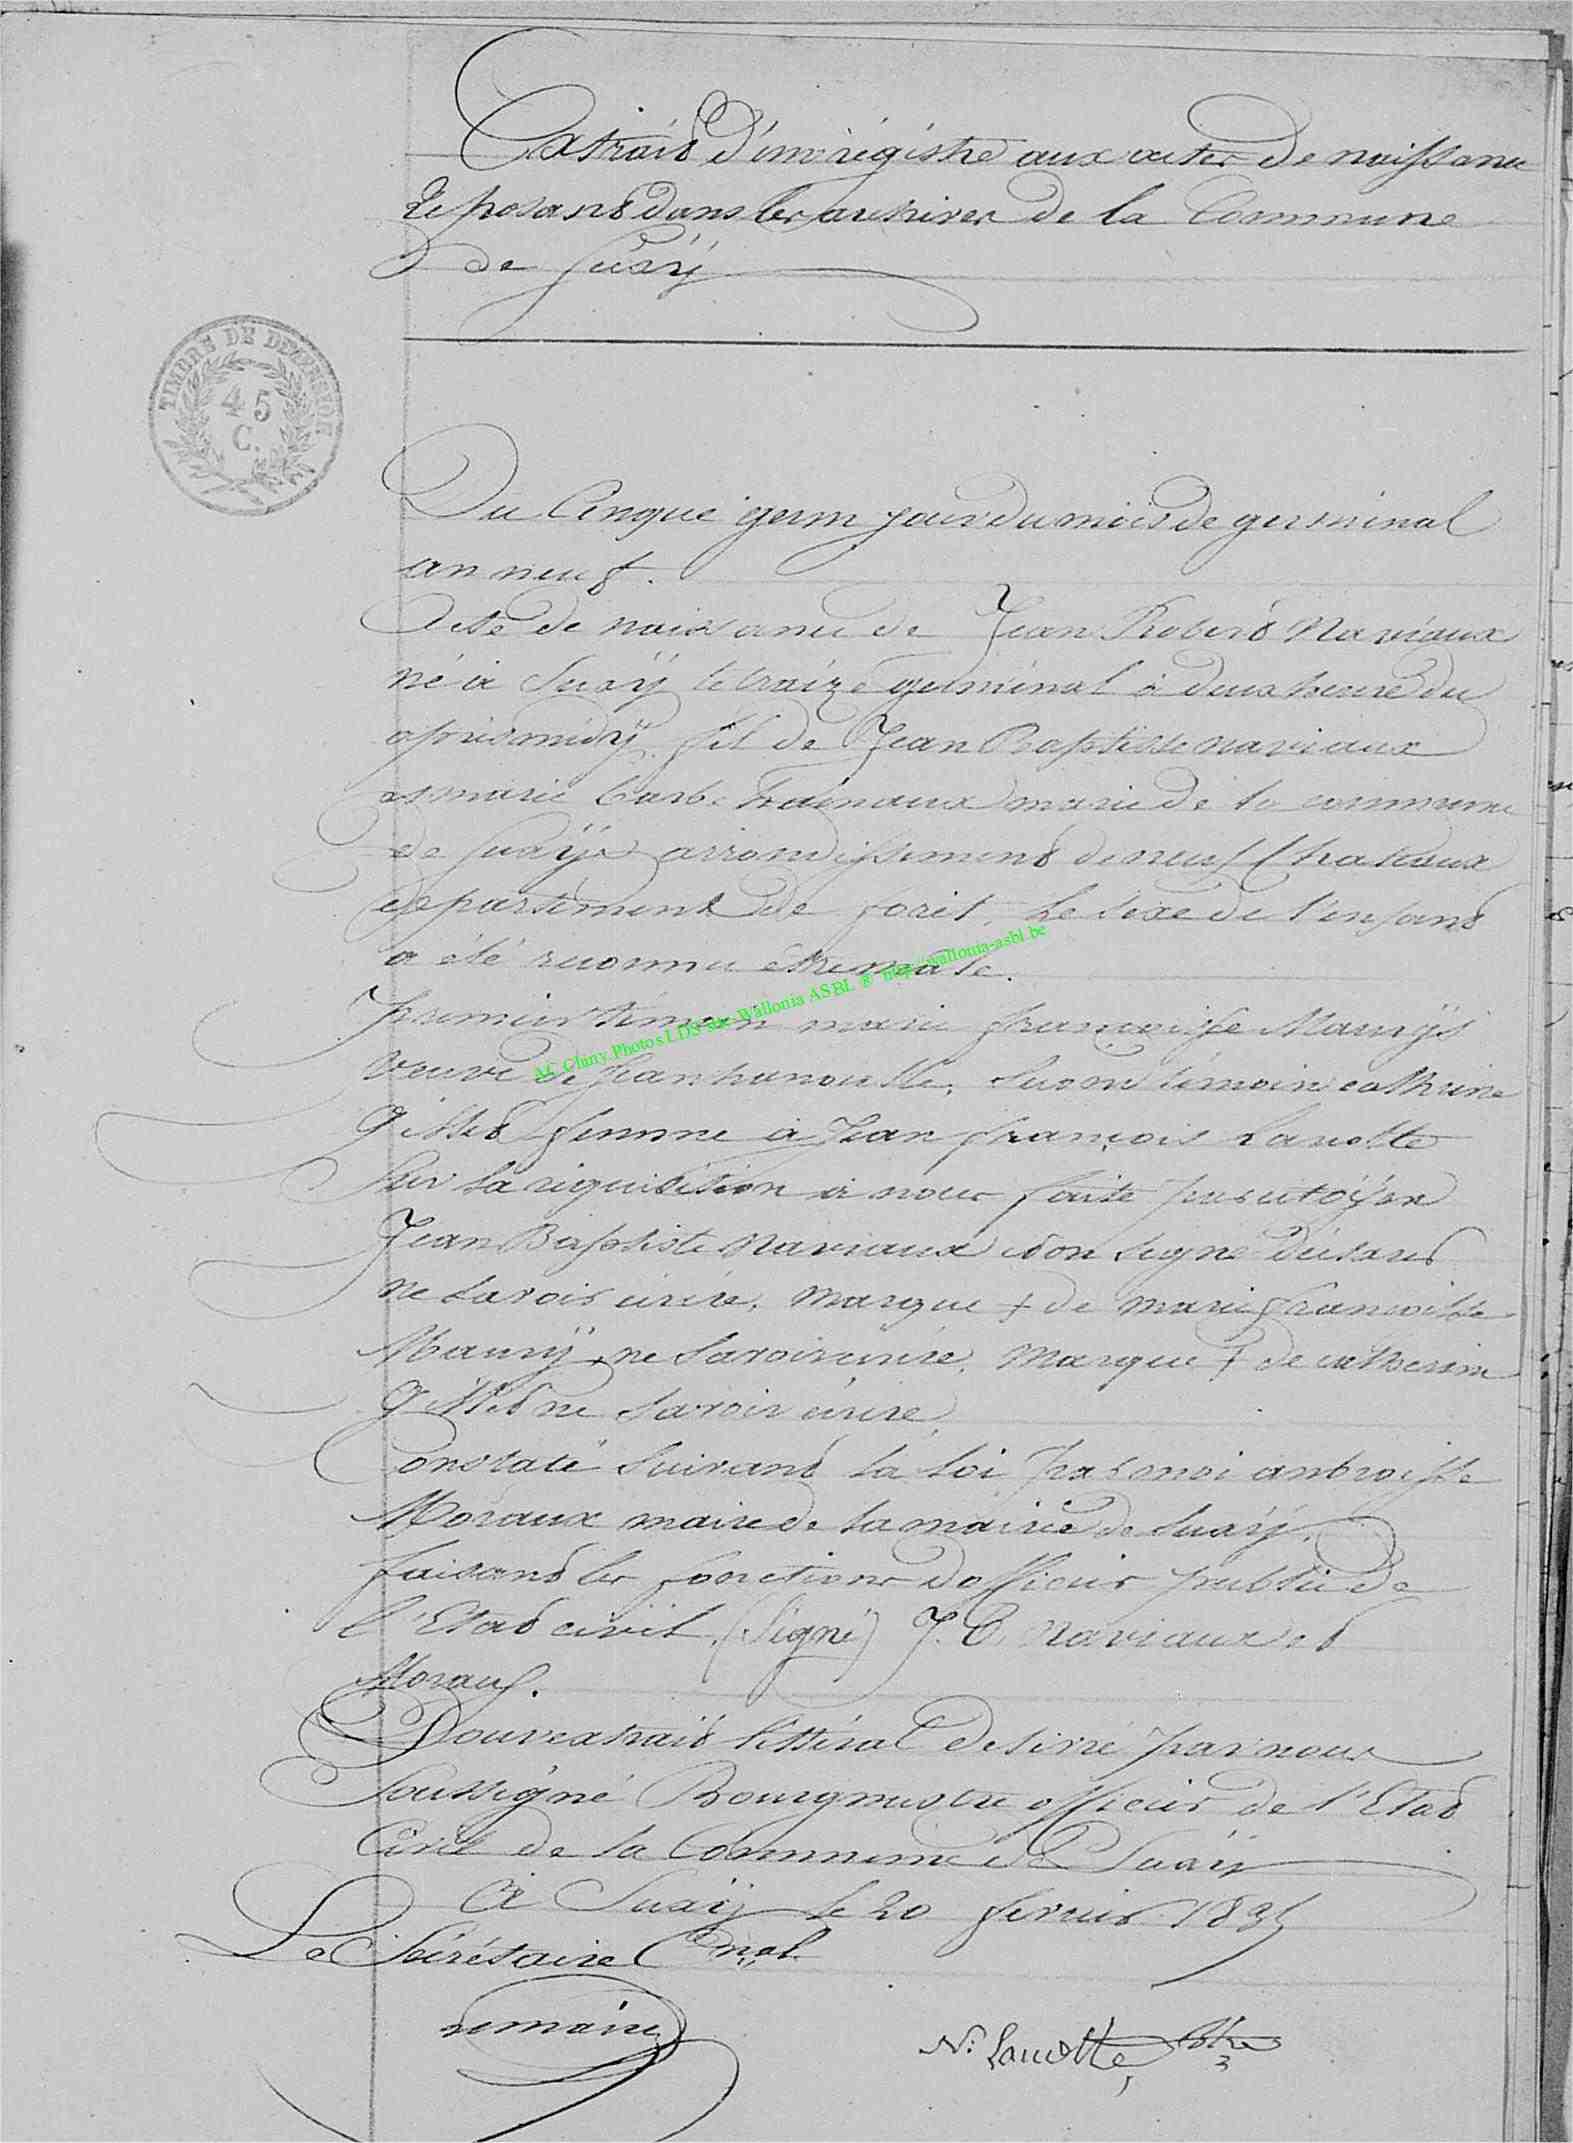 Extrait d'un régistre aux actes de naissance
Reposant dans les archives de la Commune
de Suxÿ
TIMBRE DE DIMENSION
45
C.
Du Cinque germ jour du mois de germinal
an neuf.
Acte de naissance de Jean Robert Naviaux
né à Suxÿ le traize germinal à deux heure du
aprèsmidÿ fil de Jean Baptiste naviaux
et marie barbe marié de la commune
de Suxÿ arrondissement de neuf Chateaux
département de forêt. Le sexe de l'enfant
a été reconnu être male.
premier témoin marie françoisse Mauryß
veuve de Jean hanoulle, second témoin cathrine
Gillet femme à Jean françois Lanotte
Sur la réquisition à nous faite par citoÿen
Jean Baptiste naviaux disant
ne savoir écrire. Marque + de marie francoisse
Maurÿ ne savoir écrire. Marque + de catherine
Gillet ne savoir écrire.
Constaté suivant la loi par moi ambroisse
Moraux maire de la mairie de Suxÿ.
faisant les fonctions d'officier public de
l'Etat civil. (Signé) J. B. Naviaux et
Moraux.
Pour extrait littéral delivré par nous
Soussigné Bourgmestre officier de l'Etat
Civil de la Commune de Suxÿ
A Suxÿ le 20 fevrier 1835
Le Sécrétaire Cnal
N: Lanotte
AC Chiny Photos LDS site Wallonia ASBL ® http://wallonia-asbl.be